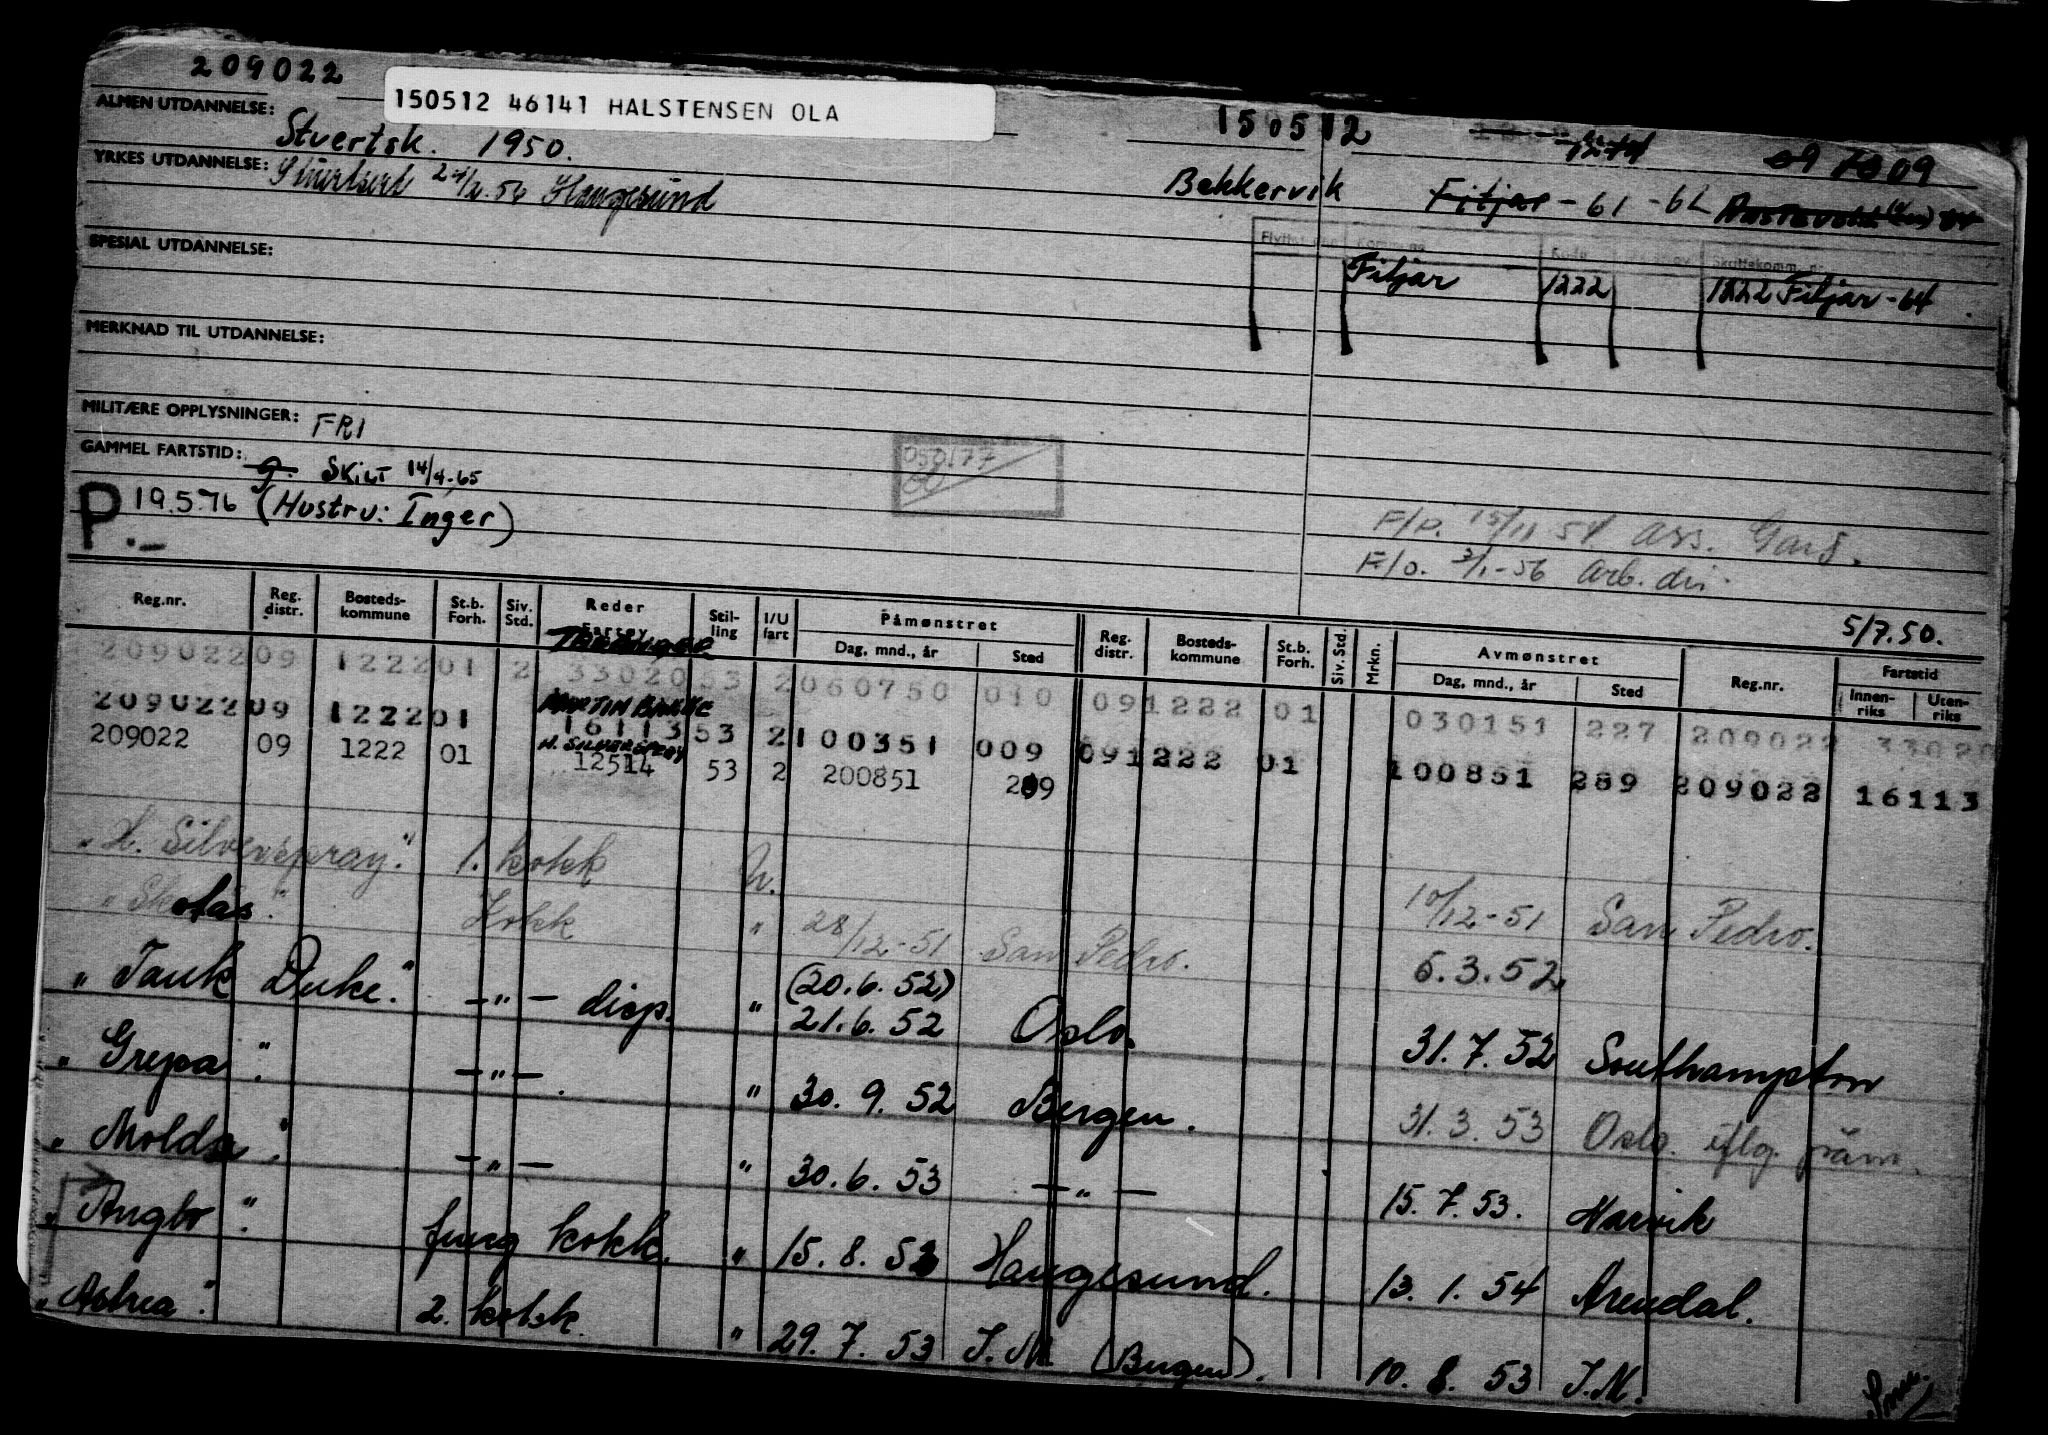 209022
150512 46141 HALSTENSEN OLA
150512
09
09
ALMEN UTDANNELSE: Stuertsk. 1950.
YRKES UTDANNELSE: Haugesund
Bekkervik Fitjar - 61 - 62
SPESIAL UTDANNELSE:
Kommune Skattekomm. nr.
Fitjar 1222 1222 Fitjar - 64
MERKNAD TIL UTDANNELSE:
MILITÆRE OPPLYSNINGER: FRI
GAMMEL FARTSTID: g. SKILT 14/4-65
P 19.5.76 (Hustru: Inger)
050177
F/p. 15/11 54 ass. Gard.
F/o. 3/1-56 arb. dir.
5/7.50.
Reg.nr. Reg. distr. Bosteds-kommune St.b. Forh. Siv. Std. Reder Fartøy Stil-ling I/U fart Påmønstret Dag, mnd., år Sted Reg. distr. Bosteds-kommune St.b. Forh. Siv. Std. Mrkn. Avmønstret Dag, mnd., år Sted Reg.nr. Fartstid Innen-riks Uten-riks
209022 09 1222 01 2 33020 53 2 060750 010 09 1222 01 030151 227 209022 33020
MARTIN BAKKE
209022 09 1222 01 16113 53 2 100351 009 09 1222 01 100851 289 209022 16113
H. SILVERSPRAY
209022 09 1222 01 12514 53 2 200851 289
"H. Silverspray." 1. kokk U. 10/12-51 San Pedro.
"Skotås." Kokk " 28/12-51 San Pedro. 6.3.52
"Tank Duke." -"- disp. " (20.6.52) 21.6.52 Oslo. 31.7.52 Southampton
"Grepa". -"-. " 30.9.52 Bergen. 31.3.53 Oslo. iflg. påm.
"Molda". -"- " 30.6.53 -"- 15.7.53. Narvik
"Anglo". fung kokk. " 15.8.53 Haugesund. 13.1.54 Arendal.
"Astrea". 2. kokk. " 29.7.53 I.M. (Bergen). 10.8.53 I.M.
Snu.